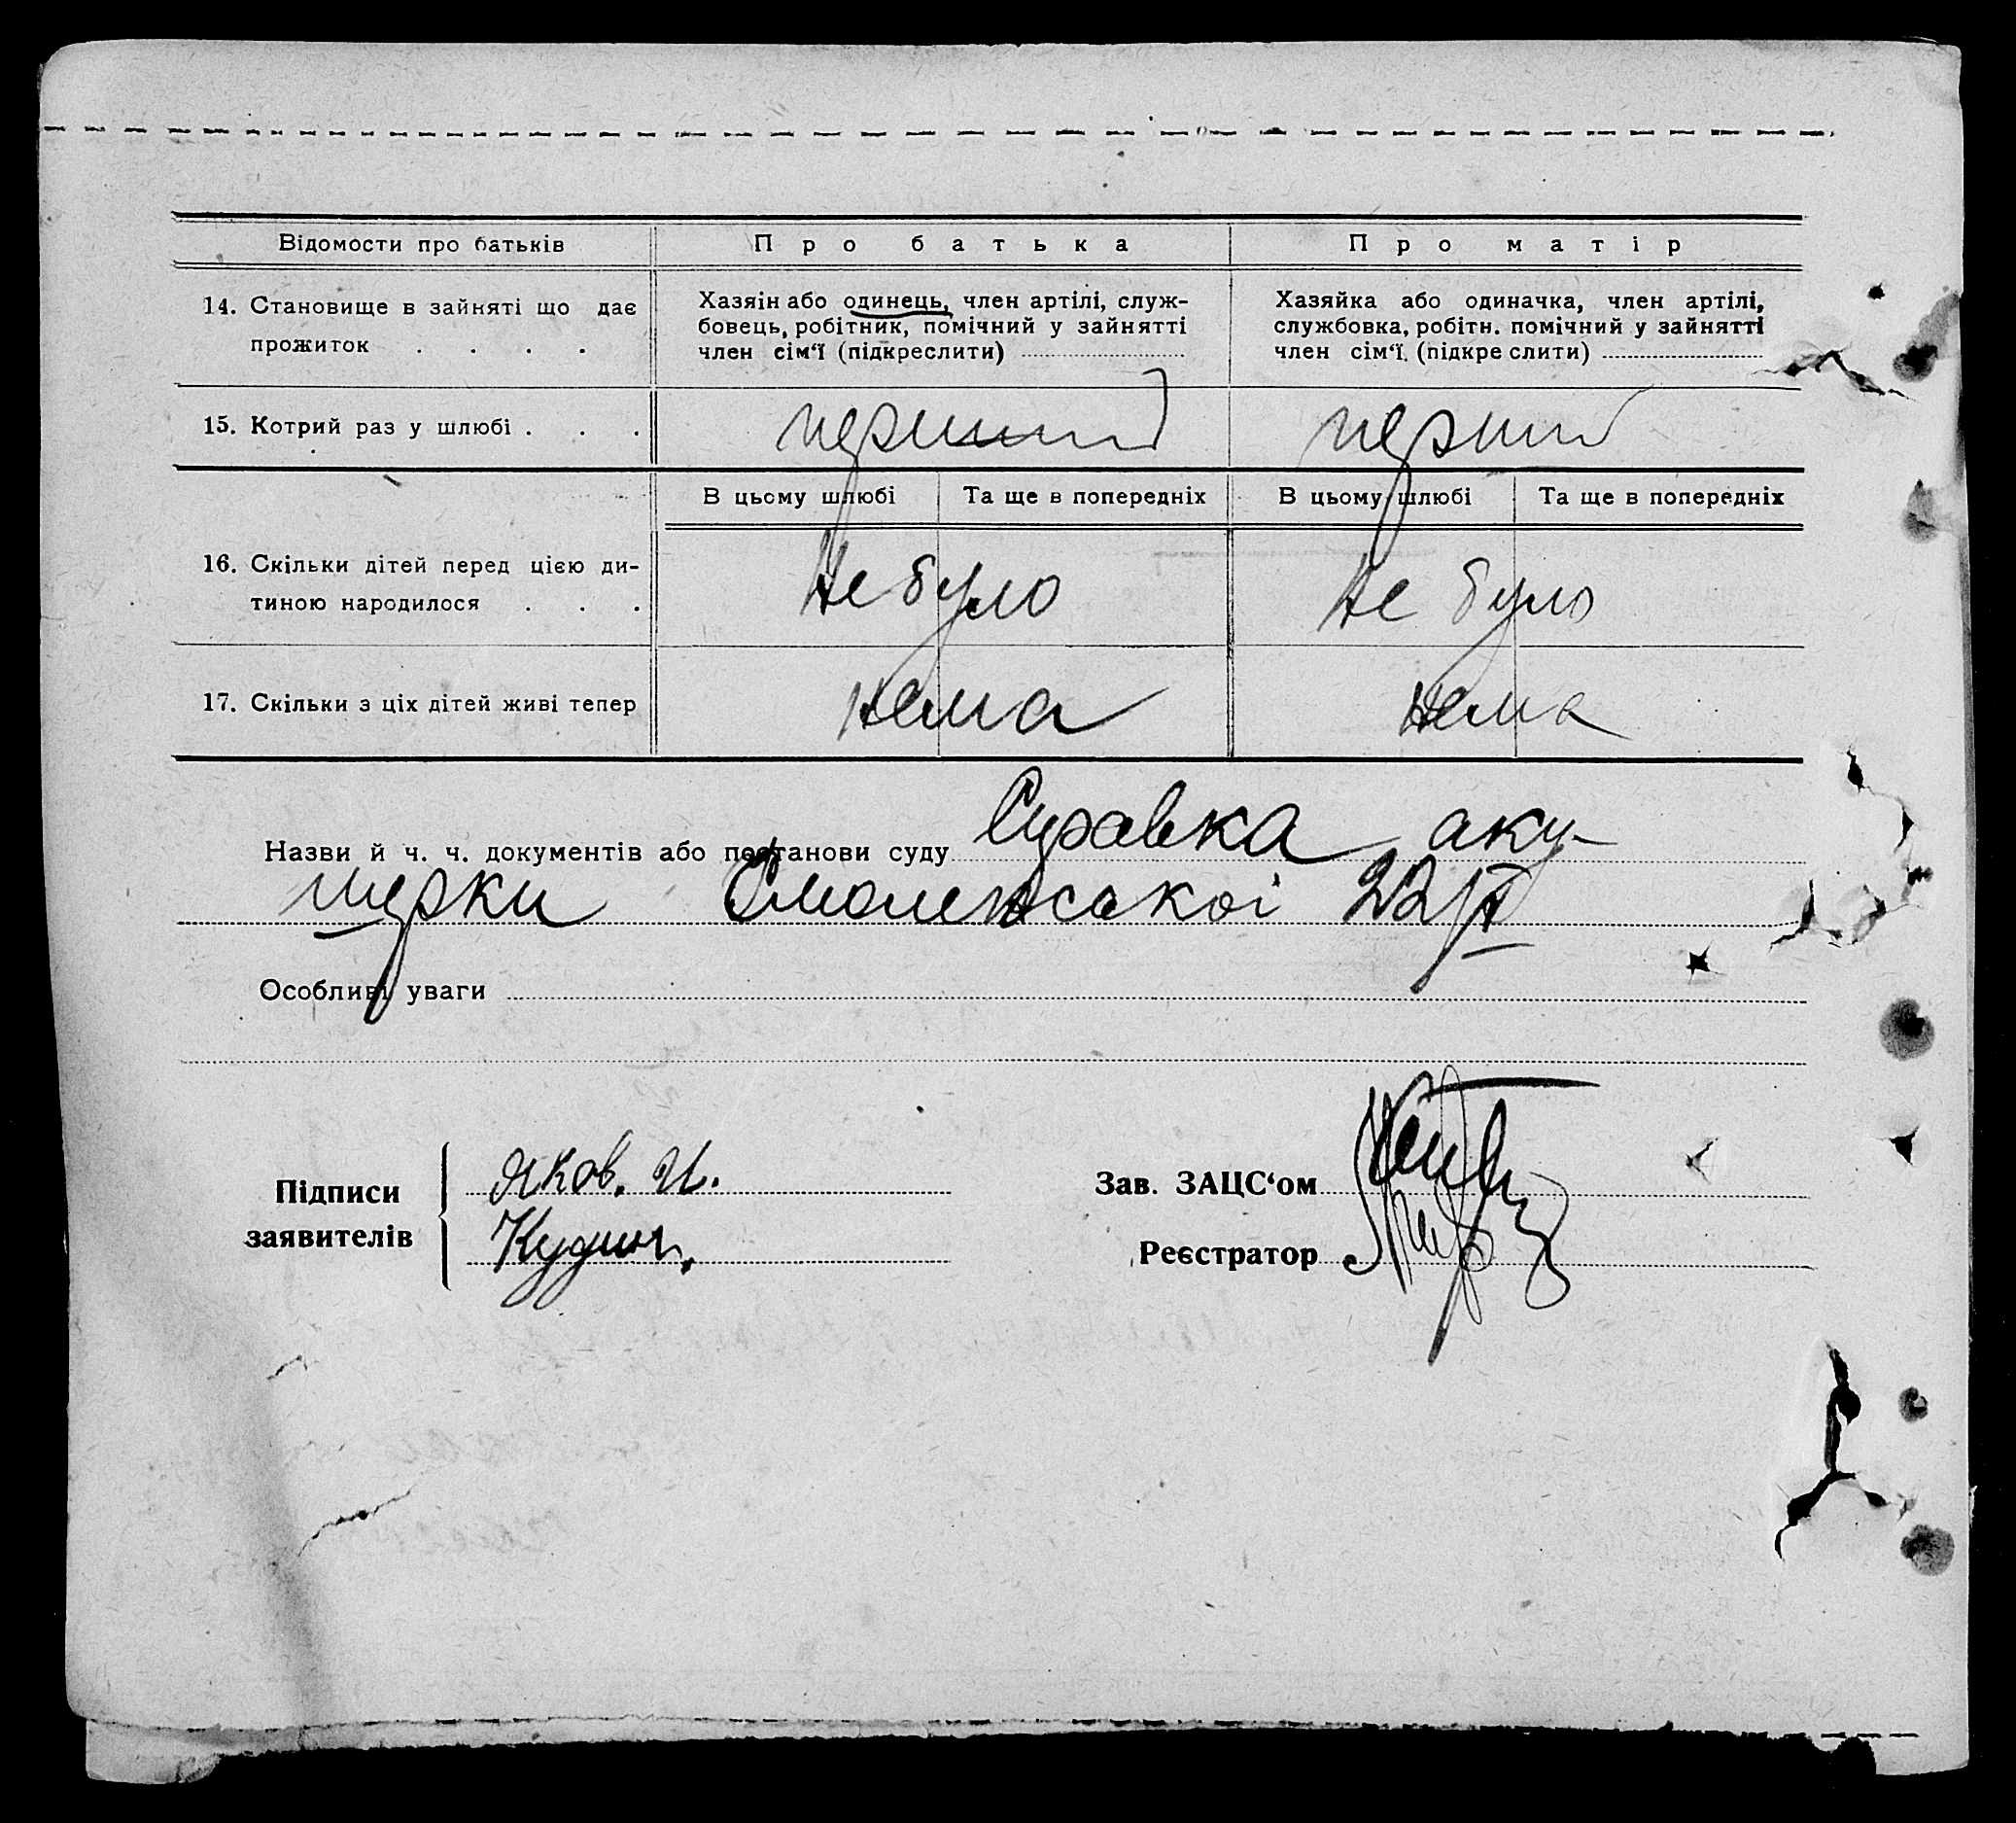 Відомости про батьків
Про батька
Про матір
14. Становище в зайняті що дає
прожиток . . . .
Хазяїн або одинець, член артілі, служ-
бовець, робітник, помічний у зайнятті
член сім‘ї (підкреслити)
Хазяйка або одиначка, член артілі,
службовка, робітн. помічний у зайнятті
член сім‘ї. (підкреслити)
15. Котрий раз у шлюбі . . .
перший
перший
В цьому шлюбі
Та ще в попередніх
В цьому шлюбі
Та ще в попередніх
16. Скільки дітей перед цією ди-
тиною народилося . . .
Не було
Не було
17. Скільки з ціх дітей живі тепер
нема
нема
Назви й ч. ч. документів або постанови суду Справка аку-
шерки Смоленської 22/
Особливі уваги
Підписи
заявителів
Яков. И.
Кудин,
Зав. ЗАЦС‘ом
Реєстратор